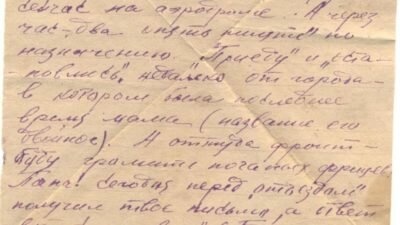 сейчас на аэродроме. А через
час-два по
назначению. "Приеду" и "оста-
новлюсь" недалеко от города-
в котором была последнее
время мама (название его
двойное). А оттуда фронт-
буду громить поганых фрицев.
Папа! Сегодня перед "отъездом"
получил твое письмо, а ответ